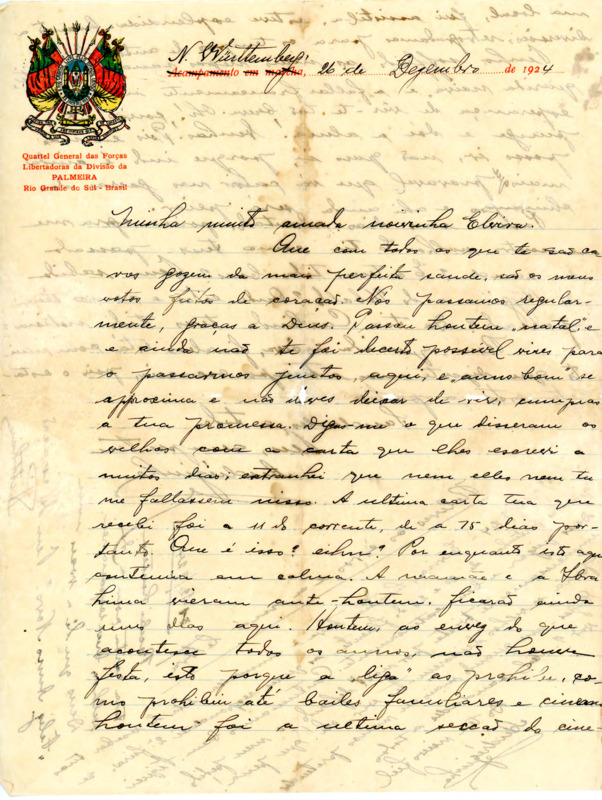 N. Württemberg,
Acampamento em marcha, 26 de Dezembro de 1924
Quartel General das Forças
Libertadoras da Divisão da
PALMEIRA
Rio Grande do Sul - Brasil
Minha muito amada noivinha Elvira.
Que com todos os que te são ca
ros gozem da mais perfeita saude, são os meus
votos e feitos de coração. Nós passamos regular-
mente, graças a Deus. Passou hontem "natal" e
e ainda não te foi possivel vires para
o passarmos juntos, aqui, e "anno bom" se
approxima e não deves deixar de vir, cumpras
a tua promessa. Digas-me o que disseram os
velhos com a carta que lhes escrevi a
muitos dias; extranhei que nem elles nem tu
me fallassem nisso. A ultima carta tua que
recebi foi a 11 do corrente, de a 15, dias por-
tanto. Que é isso? eihn? Por enquanto isto aqui
continua em calma. A mamãe e a Ibra
hima vieram ante-hontem, ficarão ainda
uns dias aqui. Hontem, ao envez do que
acontece todos os annos, não houve
festa, isto porque a "liga" as prohibiu, co-
mo prohibiu até bailes familiares e cinema
hontem foi a ultima secção do cine-